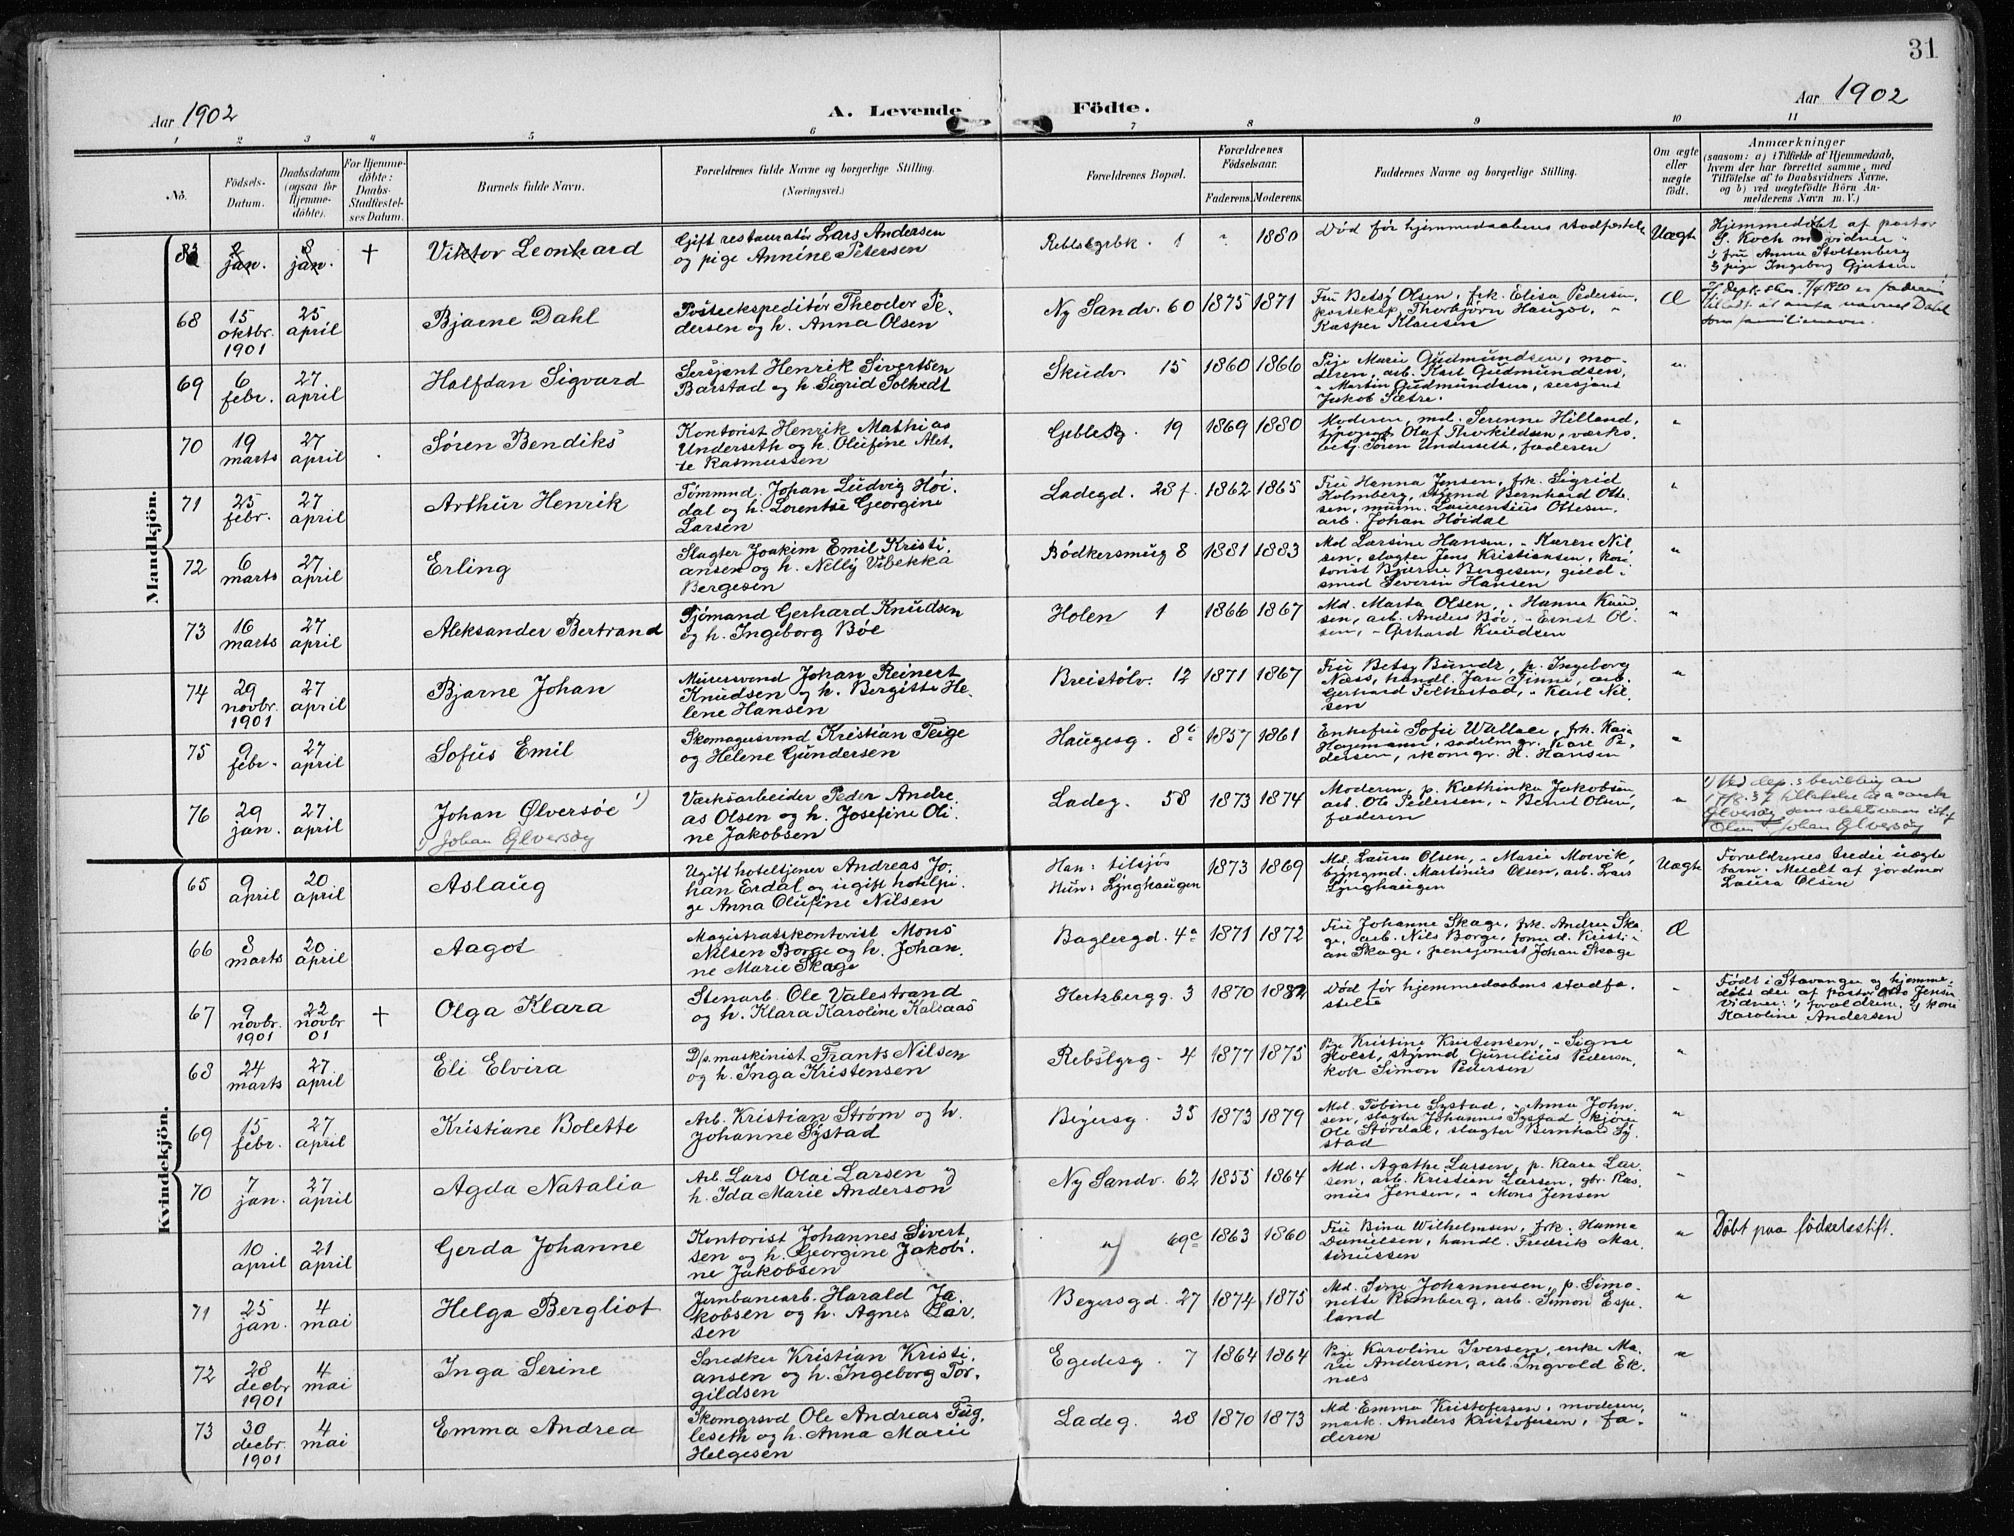 31
Aar 1902
A. Levende Födte.
Aar 1902
1 2 3 4 5 6 7 8 9 10 11
No.
Födsels-
Datum.
Daabsdatum
(ogsaa for
Hjemme-
döbte).
For Hjemme-
döbte:
Daabs-
Stadfæstel-
ses Datum.
Barnets fulde Navn.
Forældrenes fulde Navne og borgerlige Stilling.
(Næringsvei.)
Forældrenes Bopæl.
Forældrenes
Födselsaar.
Faderens. Moderens.
Faddernes Navne og borgerlige Stilling.
Om ægte
eller
uægte
födt.
Anmærkninger
(saasom: a) i Tilfælde af Hjemmedaab,
hvem der har forrettet samme, med
Tilföielse af to Daabsvidners Navne,
og b) ved uægtefödte Börn An-
melderens Navn m. V.)
Mandkjön.
2
jan.
8
jan.
+
Viktor Leonhard
Gift restauratør Lars Andersen
og pige Annine Petersen
1
"
1880
Død før hjemmedaabens stadfæstelse
Uægte
Hjemmedøbt af pastor
S. Koch m vidner
fru Anna Stoltenberg
pige Ingeborg
68
15
oktbr.
1901
25
april
Bjarne Dahl
Postekspeditør Theodor Pe-
dersen og h. Anna Olsen
Ny Sandv. 60
1875
1871
Fru Betsy Olsen, frk. Elisa Pedersen,
posteksp. Thorbjørn Haugsø, "
Kasper Klausen
Æ
navnet Dahl
som familienavn.
69
6
febr.
27
april
Halfdan Sigvard
Sersjant Henrik Sivertsen
Barstad og h. Sigrid Solhedt
Skudv. 15
1860
1866
Pige Marie Gudmundsen, mo-
deren, arb. Karl Gudmundsen,
" Martin Gudmundsen, sersjant
Jakob Sætre.
"
70
19
marts
27
april
Søren Bendiks
Kontorist Henrik Mathias
Underseth og h. Olufine Alet-
te Rasmussen
Geblesg. 19
1869
1880
Moderen, md. Serenne Hilland,
typograf Olaf Thorkildsen, værks-
betj. Søren Underseth, faderen
"
71
25
febr.
27
april
Arthur Henrik
Tømmmd. Johan Ludvig Høi-
dal og h. Lorentse Georgine
Larsen
Ladegd. 28 f.
1862
1865
Fru Hanna Jensen, frk. Sigrid
Holmberg, styrmd Bernhard Otte-
sen, murm. Laurentius Ottesen,
arb. Johan Høidal
"
72
6
marts
27
april
Erling
Slagter Joakim Emil Kristi-
ansen og h. Nelly Vibekka
Bergesen
Bødkersmug 8
1881
1883
Md Larsine Hansen, " Karen Nil-
sen, slagter Jens Kristiansen, kon-
torist Bjarne Bergesen, guld-
smed Severin Hansen
"
73
16
marts
27
april
Aleksander Bertrand
Sjømand Gerhard Knudsen
og h. Ingeborg Bøe
Holen 1
1866
1867
Md. Marta Olsen, " Hanna Knud-
sen, arb. Anders Bøe, " Ernst Ol-
sen, " Gerhard Knudsen
"
74
29
novbr.
1901
27
april
Bjarne Johan
Murersvend Johan Reinert
Knudsen og h. Bergitte He-
lene Hansen
Breistølv. 12
1871
1867
Fru Betsy Bundt, p. Ingeborg
Næss, handl. Jan Finne, arb.
Gerhard Folkestad, " Karl Nil-
sen
"
75
9
febr.
27
april
Sofus Emil
Skomagersvend Kristian Teige
og Helene Gundersen
Haugesg. 8b
1857
1861
Enkefru Sofie Wallace, frk. Kaja
Hagemann, sadelm gr. Kare Pe-
dersen, skom gr. H. Hansen
"
76
29
jan.
27
april
Johan Ølversøe 1)
1) Johan Ølversøy
Værksarbeider Peder Andre-
as Olsen og h. Josefine Oli-
ne Jakobsen
Ladeg. 58
1873
1874
Moderen, p. Kathinka Jakobsen,
arb. Ole Pedersen, " Bernt Olsen,
faderen
"
1) Ved dep.s bevilling av
Ølversøy som slektsnavn
Olsen Johan Ølversøy
Kvindekjön.
65
9
april
20
april
Aslaug
Ugift hoteltjener Andreas Jo-
han Erdal og ugift hotelpi-
ge Anna Olufine Nilsen
Han: tilsjøs
Hun: Lynghaugen
1873
1869
Md. Laura Olsen, " Marie Morvik,
bygngmd. Martinus Olsen, arb. Lars
Lynghaugen
Uægte
Forældrenes tredie uægte
barn. Meldt af jordmor
Laura Olsen
66
3
marts
20
april
Aagot
Magistratskontorist Mons
Nilsen Borge og h. Johan-
ne Marie Skage
Baglergd. 4a
1871
1872
Fru Johanne Skage, frk. Andrea Ska-
ge, arb. Nils Borge, form d. Kristi-
an Skage, pensjonist Johan Skage
Æ
67
9
novbr.
1901
22
novbr
01
+
Olga Klara
Stenarb. Ole Valestrand
og h. Klara Karoline Kalsaas
Hertzbergg. 3
1870
1882
Død før hjemmedaabens stadfæ-
stelse
"
Født i Stavanger og hjemme-
døbt der af pastor Otto Jensen
Vidner: 1) forældrene, 2) kone
Karoline Andersen
68
24
marts
27
april
Eli Elvira
D/s. maskinist Frants Nilsen
og h. Inga Kristensen
Rebslgrg. 4
1877
1875
Pige Kristine Kristensen, " Signe
Holst, styrmd Gunelius Pedersen,
kok Simon Pedersen
"
69
15
febr.
27
april
Kristiane Bolette
Arb. Kristian Strøm og h.
Johanne Systad
Beyersg. 35
1873
1879
Md. Tobine Systad, " Anna John-
sen, slagter Johannes Systad, kjører
Ole Stordal, slagter Bernhard Sy-
stad
"
70
7
jan.
27
april
Agda Natalia
Arb. Lars Olai Larsen og
h. Ida Marie Anderson
Ny Sandv. 62
1855
1864
Md. Agathe Larsen, p. Klara Lar-
sen, arb. Kristian Larsen, gbr. Ras-
mus Jensen, " Mons Jensen
"
10
april
21
april
Gerda Johanne
Kontorist Johannes Sivert
sen og h. Georgine Jakobi-
ne Jakobsen
" 69c
1863
1860
Fru Bina Wilhelmsen, frk. Hanna
Danielsen, handl. Fredrik Mar-
tinussen
"
Døbt paa fødselsstift.
71
25
jan.
4
mai
Helga Bergliot
Jernbanearb. Harald Ja-
kobsen og h. Agnes Lar-
sen
Beyersgd. 27
1874
1875
Md. Sina Johannesen, p. Simo-
nette Romberg, arb. Simon Espe-
land
"
72
28
decbr
1901
4
mai
Inga Serine
Snedker Kristian Kristi-
ansen og h. Ingeborg Tor-
gildsen
Egedesg. 7
1864
1864
Pige Karoline Iversen, enke Ma-
rie Andersen, arb. Ingvold Ek-
næs
"
73
30
decbr.
1901
4
mai
Emma Andrea
Skomgrsvd Ole Andreas Fug-
leseth og h. Anna Marie
Helgesen
Ladeg. 28
1870
1873
Md. Emma Kristofersen, moderen,
mask. Anders Kristofersen, fa-
deren
"